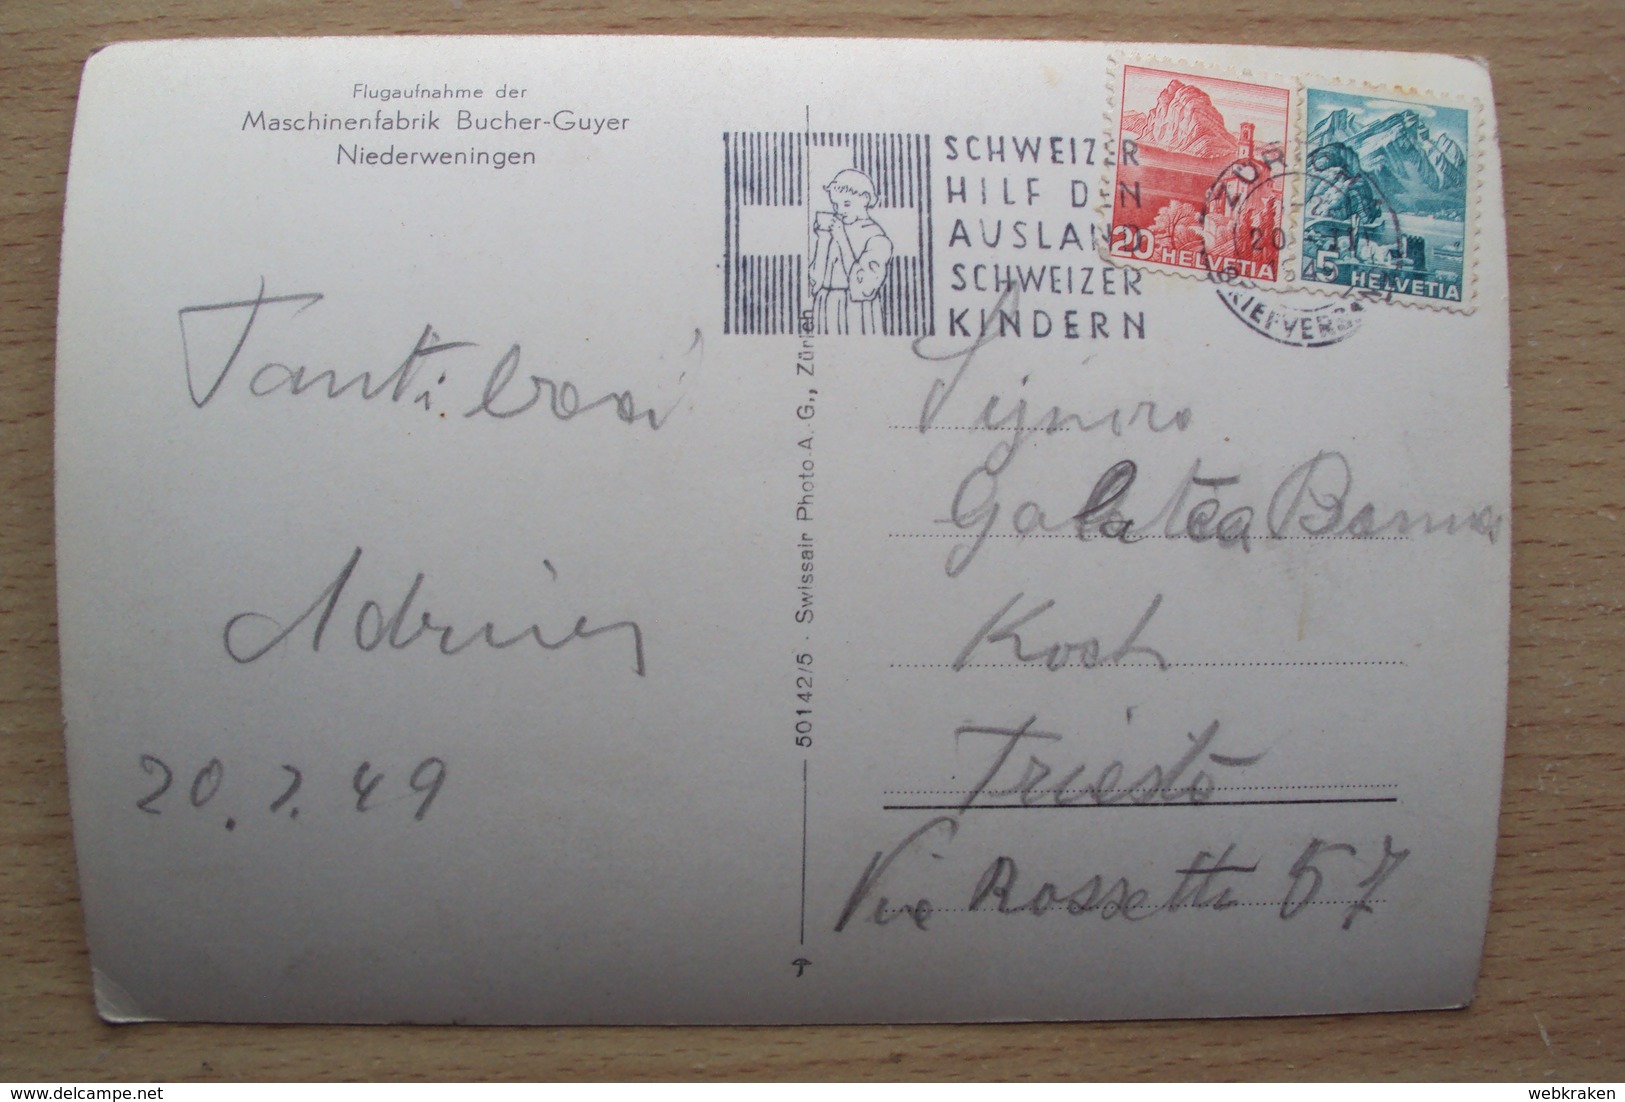 Flugaufnahme der
Maschinenfabrik Bucher-Guyer
Niederweningen
SCHWEIZER
HILF DEN
AUSLAND
SCHWEIZER
KINDERN
ZÜRICH
BRIEFVERSAND
20 HELVETIA
5 HELVETIA
Tanti baci
20.2.49
50142/5 · Swissair Photo A.-G., Zürich
Signora
Galatea
Koch
Trieste
Via Rossetti 57
webkraken